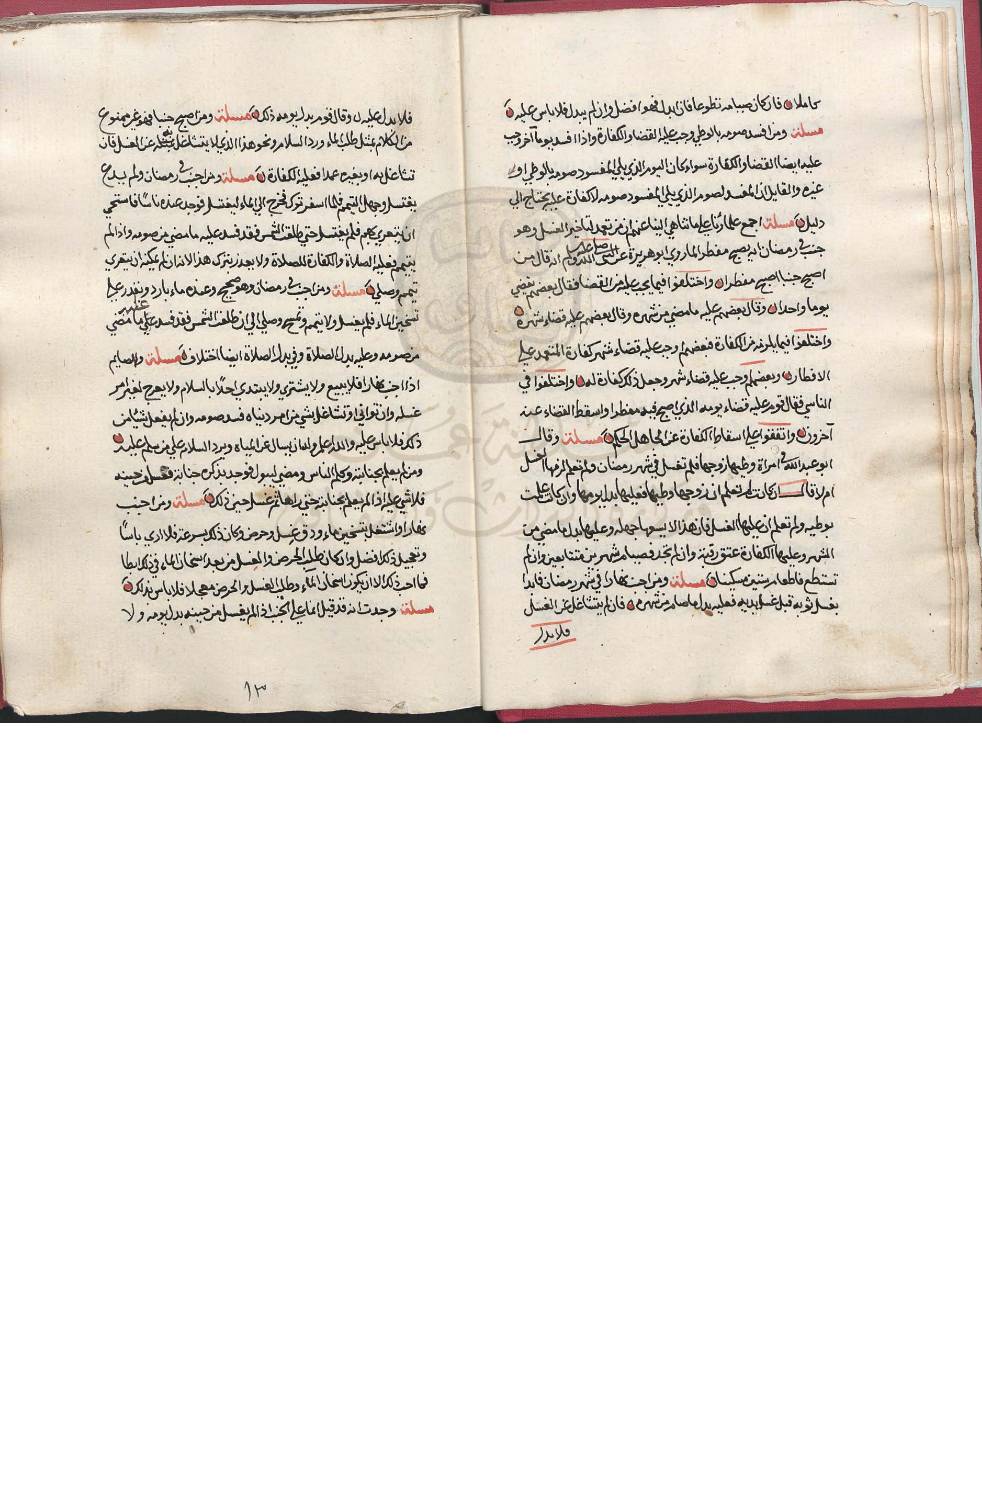 كاملا ۞ فان كان صيامه تطوعا فان ابدل فهو افضل وان لم يبدل فلا باس عليه
مسلة ومن افسد صومه بالوطي وجب عليه القضا والكفارة واذا افسد يوما آخر وجب
عليه ايضا القضا والكفارة سواء كان اليوم الذي يلي المفسود صومه بالوطي او
غيره والقايل ان المفسد لصومه الذي يلي المفسود صومه لا كفارة عليه يحتاج الي
دليل مسلة اجمع علماؤنا علي ما تناهي الينا عنهم ان من تعمد لتاخير الغسل وهو
جنب في رمضان انه يصبح مفطرا لما روي ابو هريرة عن النبي صلي الله عليه وسلم انه قال من
اصبح جنبا اصبح مفطرا واختلفوا فيما يجب عليه من القضا فقال بعضهم يقضي
يوما واحدا وقال بعضهم عليه ما مضي من شهره وقال بعضهم عليه قضاء شهره
واختلفوا فيما يلزمه من الكفارة فبعضهم اوجب عليه قضاء شهر كفارة المتعمد علي
الافطار وبعضهم اوجب عليه قضاء شهر وجعل ذلك كفارة له واختلفوا في
الناسي فقال قوم عليه قضاء يومه الذي اصبح فيه مفطرا واسقط القضاء عنه
آخرون واتفقوا علي اسقاط الكفارة عن الجاهل الحكم مسلة وقال
ابو عبد الله في امراة وطيها زوجها فلم تغسل في شهر رمضان ولم تعلم لزمها الغسل
ام لا قال ان كانت لم تعلم ان زوجها وطيها فعليها بدل يومها وان كانت علمت
بوطيه ولم تعلم ان عليها الغسل فان هذا لا يسعها جهله وعليها بدل ما مضي من
الشهر وعليها الكفارة عتق رقبة وان لم تجد فصيام شهرين متتابعين وان لم
تستطع فاطعام ستين مسكينا مسلة ومن اجنب نهارا في شهر رمضان فابدا
بغسل ثوبه قبل غسل بدنه فعليه بدل ما صام من شهره فان لم يتشاغل عن الغسل
فلا بدل
فلا بدل عليه وقال قوم بدل يومه ذلك مسلة ومن اصبح جنبا فهو غير ممنوع
من الكلام بمثل طلب الماء ورد السلام ونحو هذا الذي لا يتشاغل به عن الغسل فان
تشاغل به او بغيره عمدا فعليه الكفارة مسلة ومن اجنب في رمضان ولم يدع
يغتسل وجهل التيمم فلما اسفر ترك فخرج الي الماء ليغتسل فوجد عنده ناسا فاستحي
ان يتعري لهم فلم يغتسل حتي طلعت الشمس فقد فسد عليه ما مضي من صومه واذا لم
يتيمم فعليه الصلاة والكفارة للصلاة ولا يعذر بترك هذا الا انه ان لم يمكنه ان يتعري
تيمم وصلي مسلة ومن اجنب في رمضان وهو صحيح وعنده ماء بارد ويقدر علي
تسخين الماء فلم يغسل ولا يتيمم وتمسح وصلي الي ان طلعت الشمس فقد فسد عليه ما مضي
من صومه وعليه بدل الصلاة وفي بدل الصلاة ايضا اختلاف مسلة والصايم
اذا اجنب نهارا فلا يبيع ولا يشتري ولا يبتدي احدا بالسلام ولا يعرج لغير امر
غسله وان توانا او تشاغل بشي من امر دنياه فسد صومه وان لم يفعل شيا من
ذلك فلا باس عليه والله اعلم وله ان يسال عن المياه ويرد السلام علي من سلم عليه
ومن لم يعلم بجنابته وكلم الناس ومضي ليبول فوجد بذكره جنابة فغسل من حينه
فلا شي عليه اذا لم يعلم بجنابته حتي راها ثم غسل حين ذلك مسلة ومن اجنب
نهارا واشتغل بتسخين ماء ودق غسل وحرض وكان ذلك بسرعة فلا اري باسا
وتعجيل ذلك افضل وان كان طلب الحرض والغسل من بعد اسخان الماء في ذلك ابطا
فما احب ذلك الا ان يكون اسخان الماء وطلب الغسل والحرض معجلا فلا باس بذلك
مسلة وجدت انه قد قيل انما علي الجنب اذا لم يغسل من حينه بدل يومه ولا
١٣